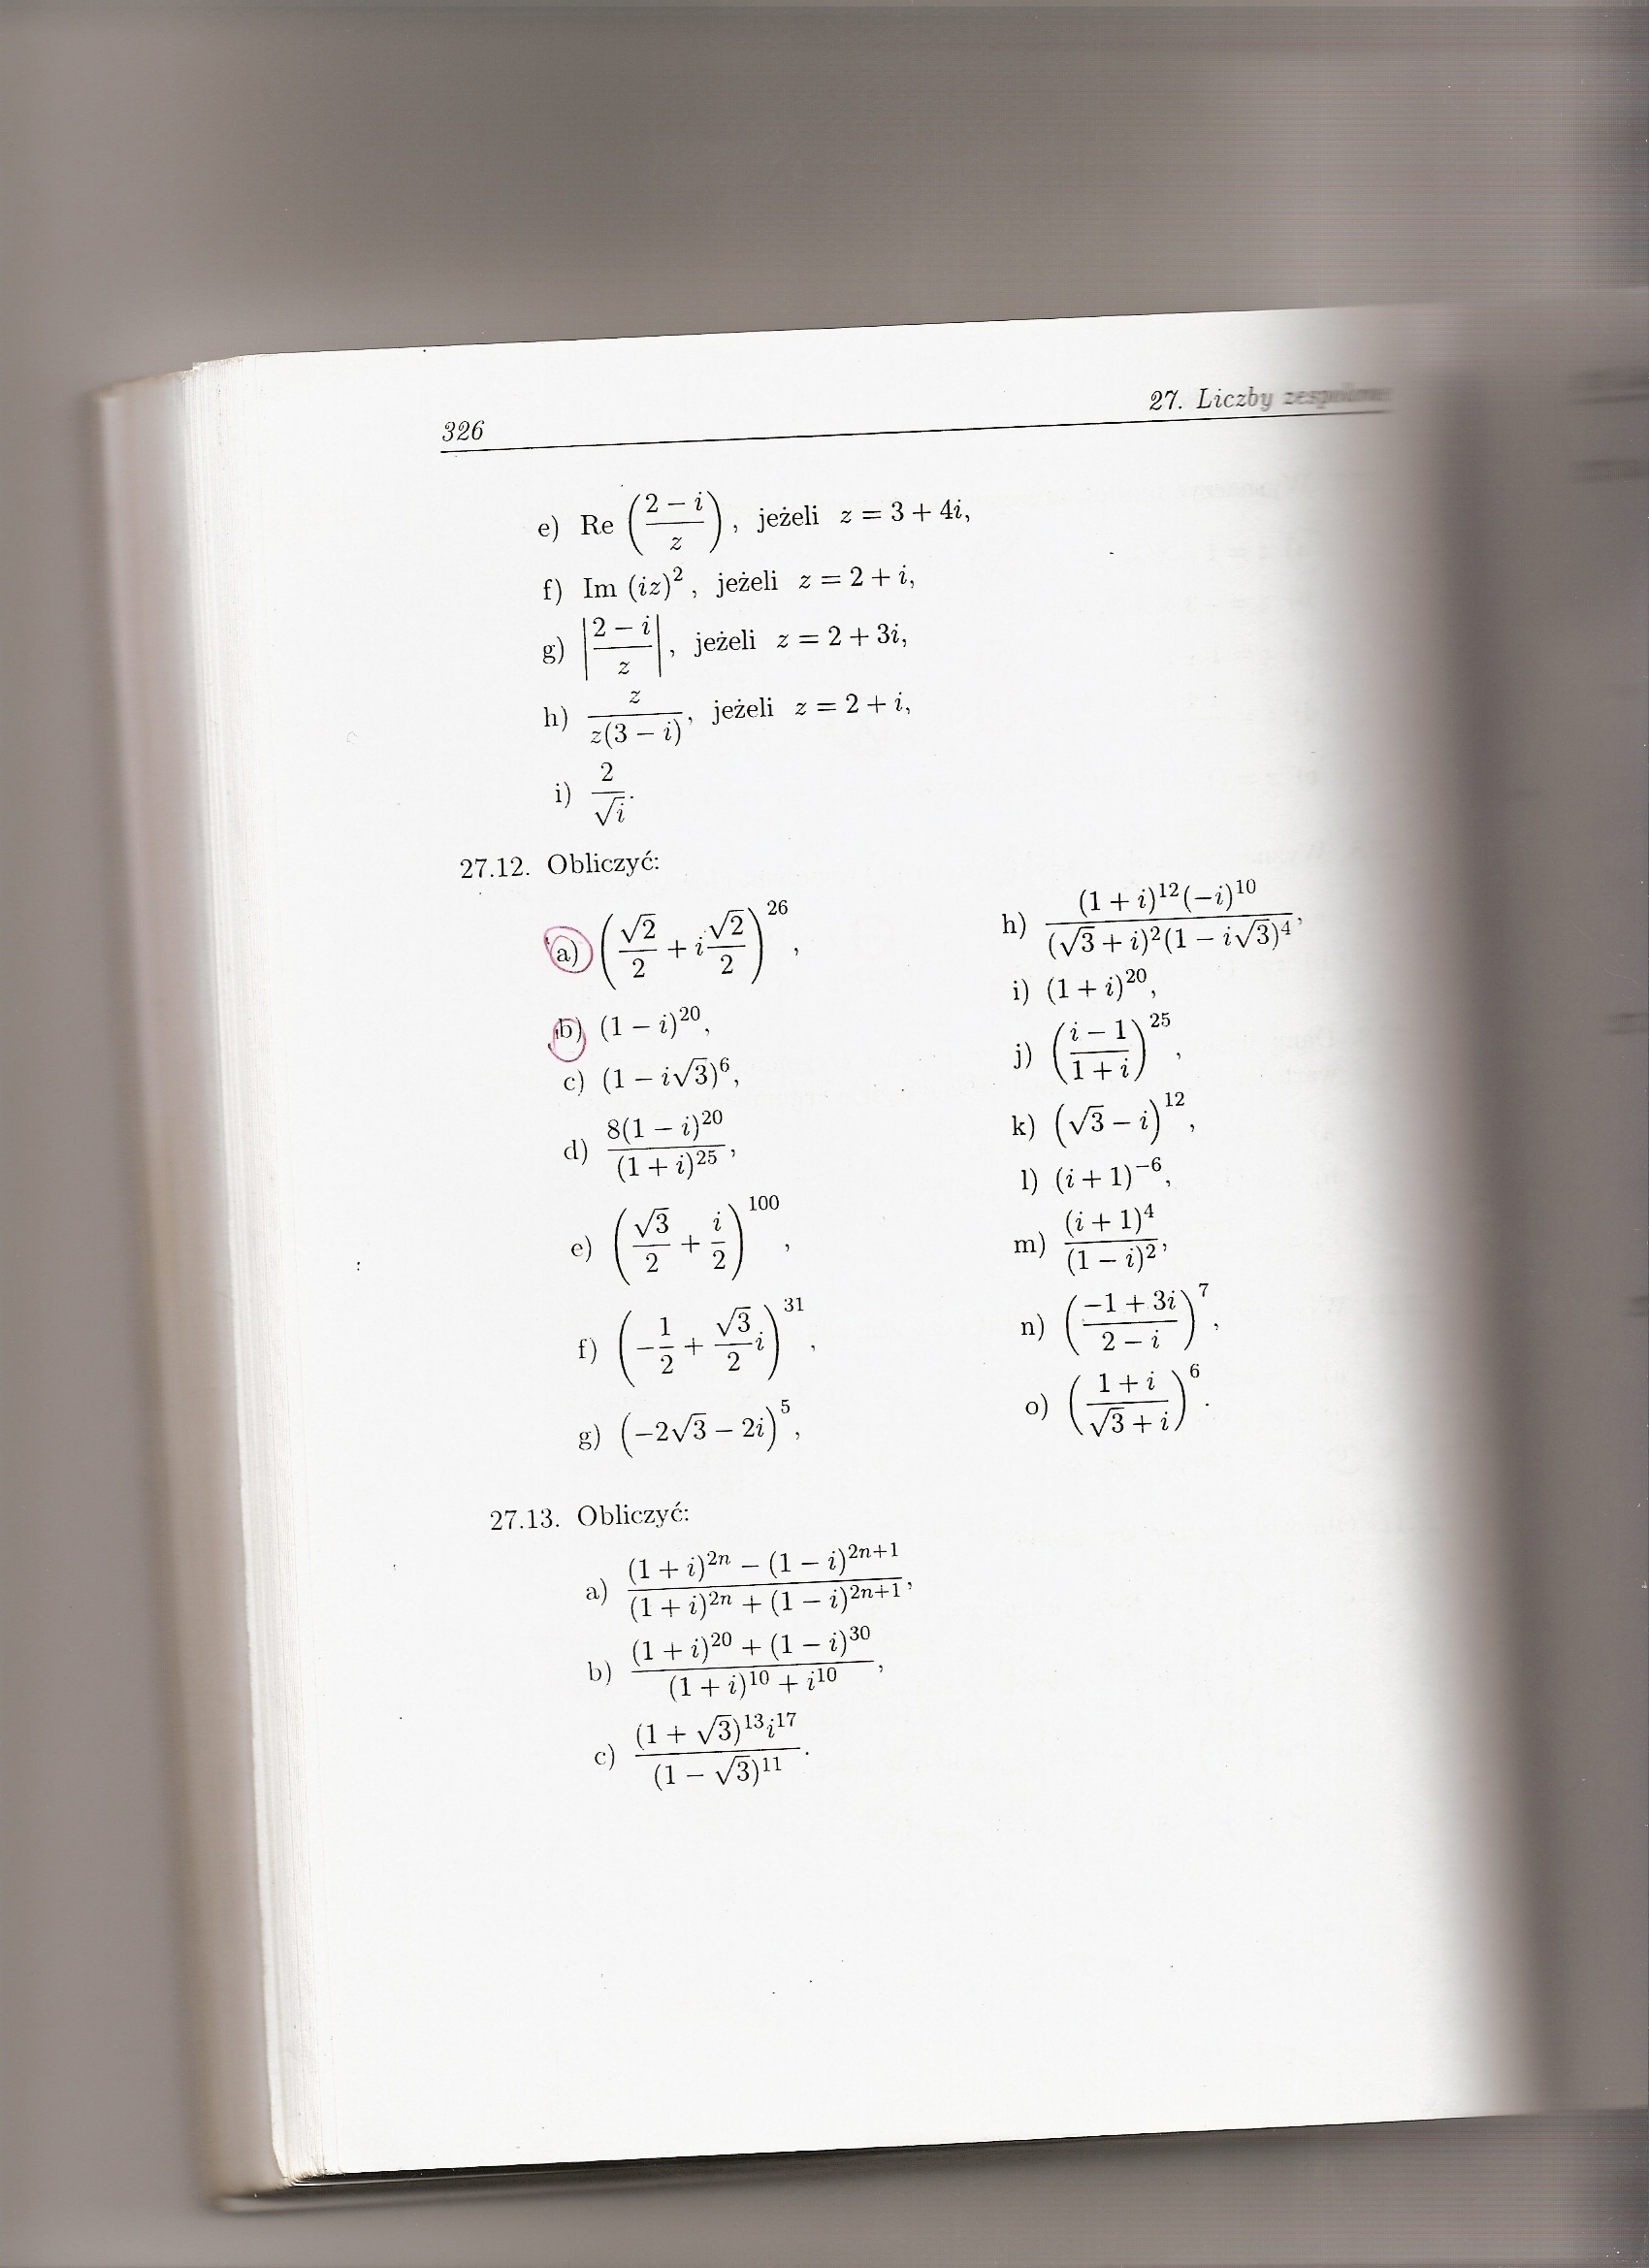 326
27. Liczby zespolone
e) Re ((2 − i)/z), jeżeli z = 3 + 4i,
f) Im (iz)², jeżeli z = 2 + i,
g) |(2 − i)/z|, jeżeli z = 2 + 3i,
h) z/(z(3 − i)), jeżeli z = 2 + i,
i) 2/√i.
27.12. Obliczyć:
a) (√2/2 + i√2/2)²⁶,
b) (1 − i)²⁰,
c) (1 − i√3)⁶,
d) 8(1 − i)²⁰/(1 + i)²⁵,
e) (√3/2 + i/2)¹⁰⁰,
f) (−1/2 + √3/2 i)³¹,
g) (−2√3 − 2i)⁵,
h) (1 + i)¹²(−i)¹⁰/((√3 + i)²(1 − i√3)⁴),
i) (1 + i)²⁰,
j) ((i − 1)/(1 + i))²⁵,
k) (√3 − i)¹²,
l) (i + 1)⁻⁶,
m) (i + 1)⁴/(1 − i)²,
n) ((−1 + 3i)/(2 − i))⁷,
o) ((1 + i)/(√3 + i))⁶.
27.13. Obliczyć:
a) ((1 + i)²ⁿ − (1 − i)²ⁿ⁺¹)/((1 + i)²ⁿ + (1 − i)²ⁿ⁺¹),
b) ((1 + i)²⁰ + (1 − i)³⁰)/((1 + i)¹⁰ + i¹⁰),
c) (1 + √3)¹³i¹⁷/(1 − √3)¹¹.